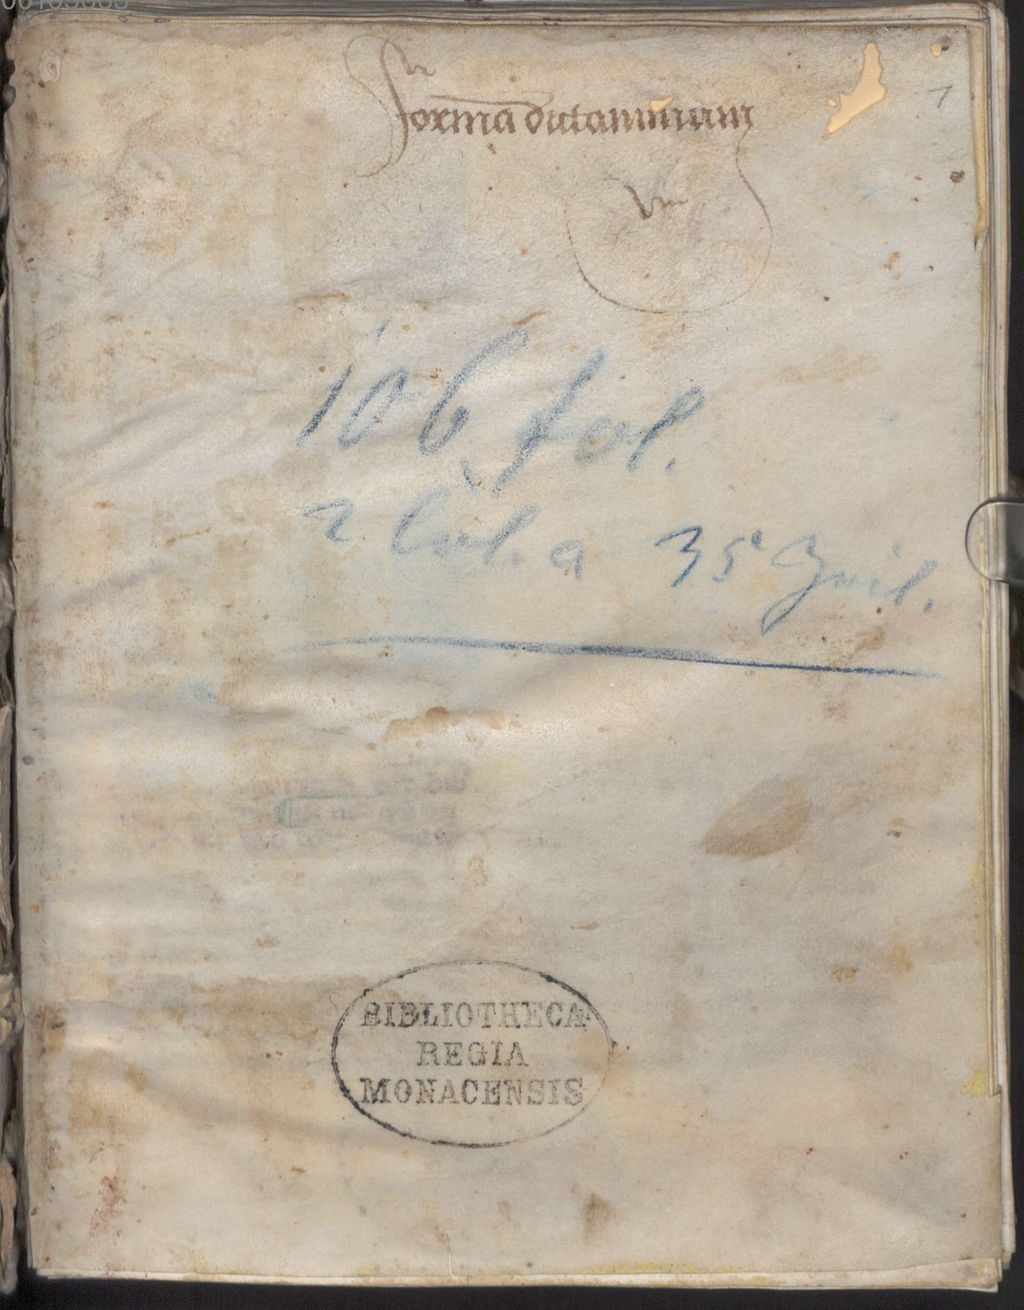 00103003
1
forma dictaminum
106 fol.
2 Col. a 35 Zeil.
BIBLIOTHECA
REGIA
MONACENSIS